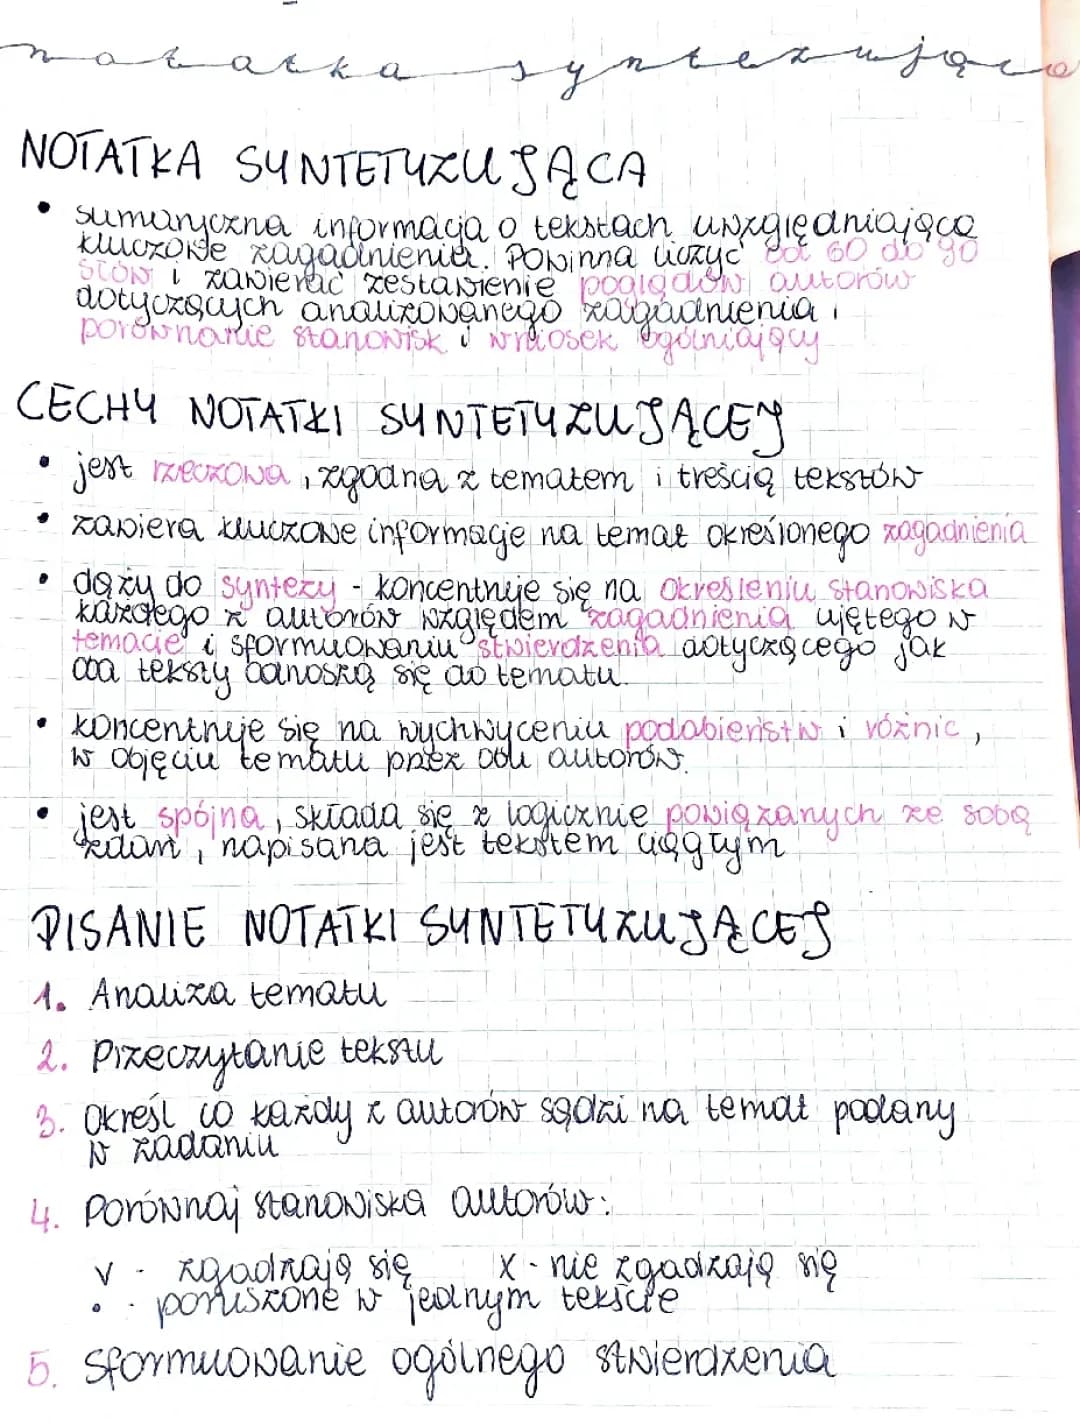 notatka syntezująca
NOTATKA SYNTETYZUJĄCA
• sumaryczna informacja o tekstach uwzględniająca
kluczowe zagadnienia. Powinna liczyć od 60 do 90
słów i zawierać zestawienie poglądów autorów
dotyczących analizowanego zagadnienia,
porównanie stanowisk i wniosek ogólniający
CECHY NOTATKI SYNTETYZUJĄCEJ
• jest rzeczowa, zgodna z tematem i treścią tekstów
• zawiera kluczowe informacje na temat określonego zagadnienia
• dąży do syntezy - koncentruje się na określeniu stanowiska
każdego z autorów względem zagadnienia ujętego w
temacie i sformułowaniu stwierdzenia dotyczącego jak
oba teksty odnoszą się do tematu.
• koncentruje się na wychwyceniu podobieństw i różnic,
w objęciu tematu przez obu autorów.
• jest spójna, składa się z logicznie powiązanych ze sobą
zdań, napisana jest tekstem ciągłym
PISANIE NOTATKI SYNTETYZUJĄCEJ
1. Analiza tematu
2. Przeczytanie tekstu
3. Określ co każdy z autorów sądzi na temat podany
w zadaniu
4. Porównaj stanowiska autorów:
V - zgadzają się X - nie zgadzają się
• - poruszone w jednym tekście
5. Sformułowanie ogólnego stwierdzenia